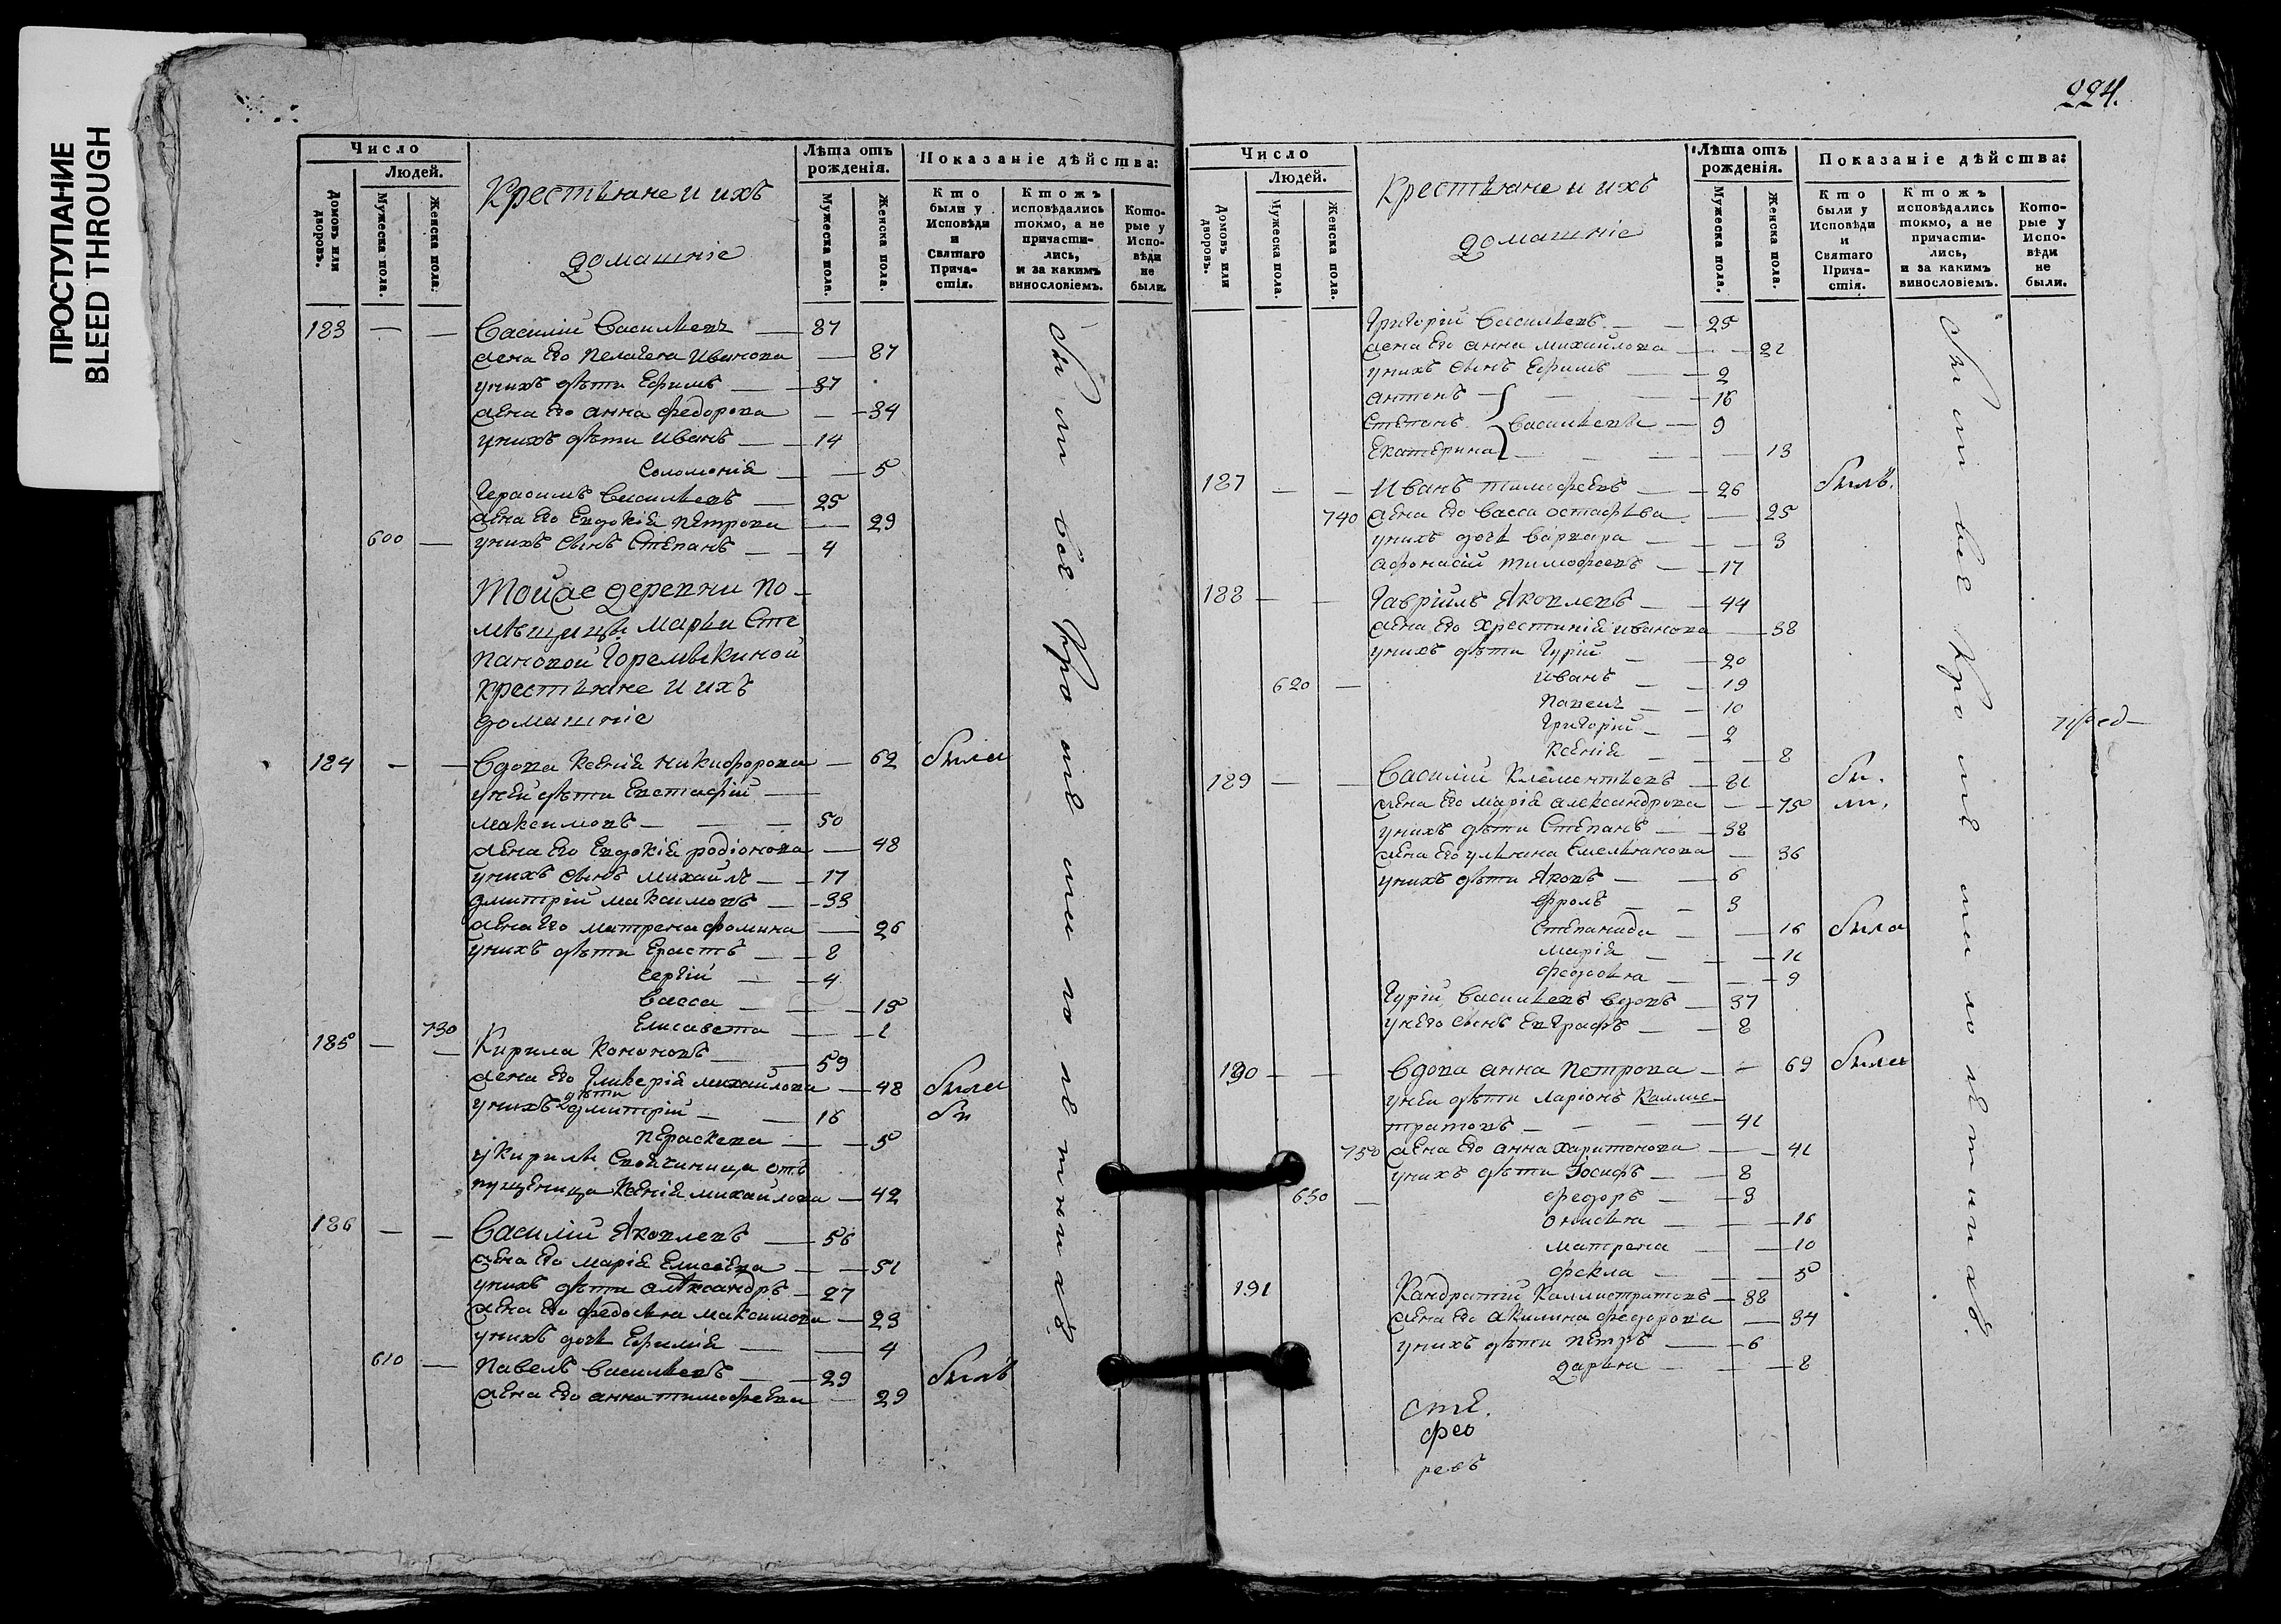 ПРОСТУПАНИЕ
BLEED THROUGH
Число
Людей.
Домовъ или дворовъ.
Мужеска пола.
Женска пола.
Крестьяне и ихъ
домашніе
Лѣта отъ рожденія.
Мужеска пола.
Женска пола.
Показаніе дѣйства:
Кто были у Исповѣди и Святаго Причастія.
Ктожъ исповѣдались токмо, а не причастились, и за какимъ винословіемъ.
Которые у Исповѣди не были.
183 — — Василій Васильевъ — 87
жена его Пелагея Иванова — 87
у нихъ дѣти Ефимъ — 37
жена его Анна Федорова — 34
у нихъ дѣти Иванъ — 14
Соломонія — 5
Герасимъ Васильевъ — 25
жена его Евдокія Петрова — 29
600 — у нихъ сынъ Степанъ — 4
Тойже деревни по-
мѣщицы Марьи Сте
пановой Горемыкиной
крестьяне и ихъ
домашніе
184 — — Вдова Ксенія Никифорова — 62 была
у ней дѣти Евстафій —
Максимовъ — 50
жена его Евдокія Родіонова — 48
у нихъ сынъ Михаилъ — 17
Дмитрій Максимовъ — 33
жена его Матрена Фомина — 26
у нихъ дѣти Ерастъ — 8
Сергій — 4
Васса — 15
730 Елисавета — 1
185 — — Кирила Кононовъ — 59
жена его Гликерія Михайлова — 48 была
у нихъ дѣти Дмитрій — 16 бы
Параскева — 5
у Кирилы свойчиница от
пущеница Ксенія Михайлова — 42
186 — — Василій Яковлевъ — 56
жена его Марія Елисѣева — 51
у нихъ дѣти Александръ — 27
жена его Федосья Максимова — 23
у нихъ дочь Ефимія — 4
610 — Павелъ Васильевъ — 29 былъ
жена его Анна Тимофеева — 29
были все кромѣ малолѣтныхъ
224.
Число
Людей.
Домовъ или дворовъ.
Мужеска пола.
Женска пола.
Крестьяне и ихъ
домашніе
Лѣта отъ рожденія.
Мужеска пола.
Женска пола.
Показаніе дѣйства:
Кто были у Исповѣди и Святаго Причастія.
Ктожъ исповѣдались токмо, а не причастились, и за какимъ винословіемъ.
Которые у Исповѣди не были.
Григорій Васильевъ — 25
жена его Анна Михайлова — 21
у нихъ сынъ Ефимъ — 2
Антонъ — 16
Степанъ Васильевы — 9
Екатерина — 13
187 — — Иванъ Тимофеевъ — 26 былъ.
740 жена его Васса Остафьева — 25
у нихъ дочь Варвара — 3
Афонасій Тимофеевъ — 17
188 — — Гавріилъ Яковлевъ — 44
жена его Хрестинія Иванова — 38
у нихъ дѣти Гурій — 20
620 — Иванъ — 19
Павелъ — 10
Григорій — 2
Ксенія — 8
189 — — Василій Клементьевъ — 81 бы.
жена его Марія Александрова — 75 ли.
у нихъ дѣти Степанъ — 38
жена его Ульяна Емельянова — 36
у нихъ дѣти Яковъ — 6
Фролъ — 3
Степанида — 16 была
Марія — 11
Федосья — 9
Гурій Васильевъ вдовъ — 37
у него сынъ Евграфъ — 8
190 — — Вдова Анна Петрова — 69 была
у ней дѣти Ларіонъ Каллис-
тратовъ — 41
750 жена его Анна Харитонова — 41
у нихъ дѣти Іосифъ — 8
630 — Федоръ — 3
Анисья — 16
Матрена — 10
Фекла — 5
191 Кандратій Каллистратовъ — 38
жена его Акилина Федорова — 34
у нихъ дѣти Петръ — 6
Дарья — 8
сте.
фео
ревъ
были все кромѣ малолѣтныхъ.